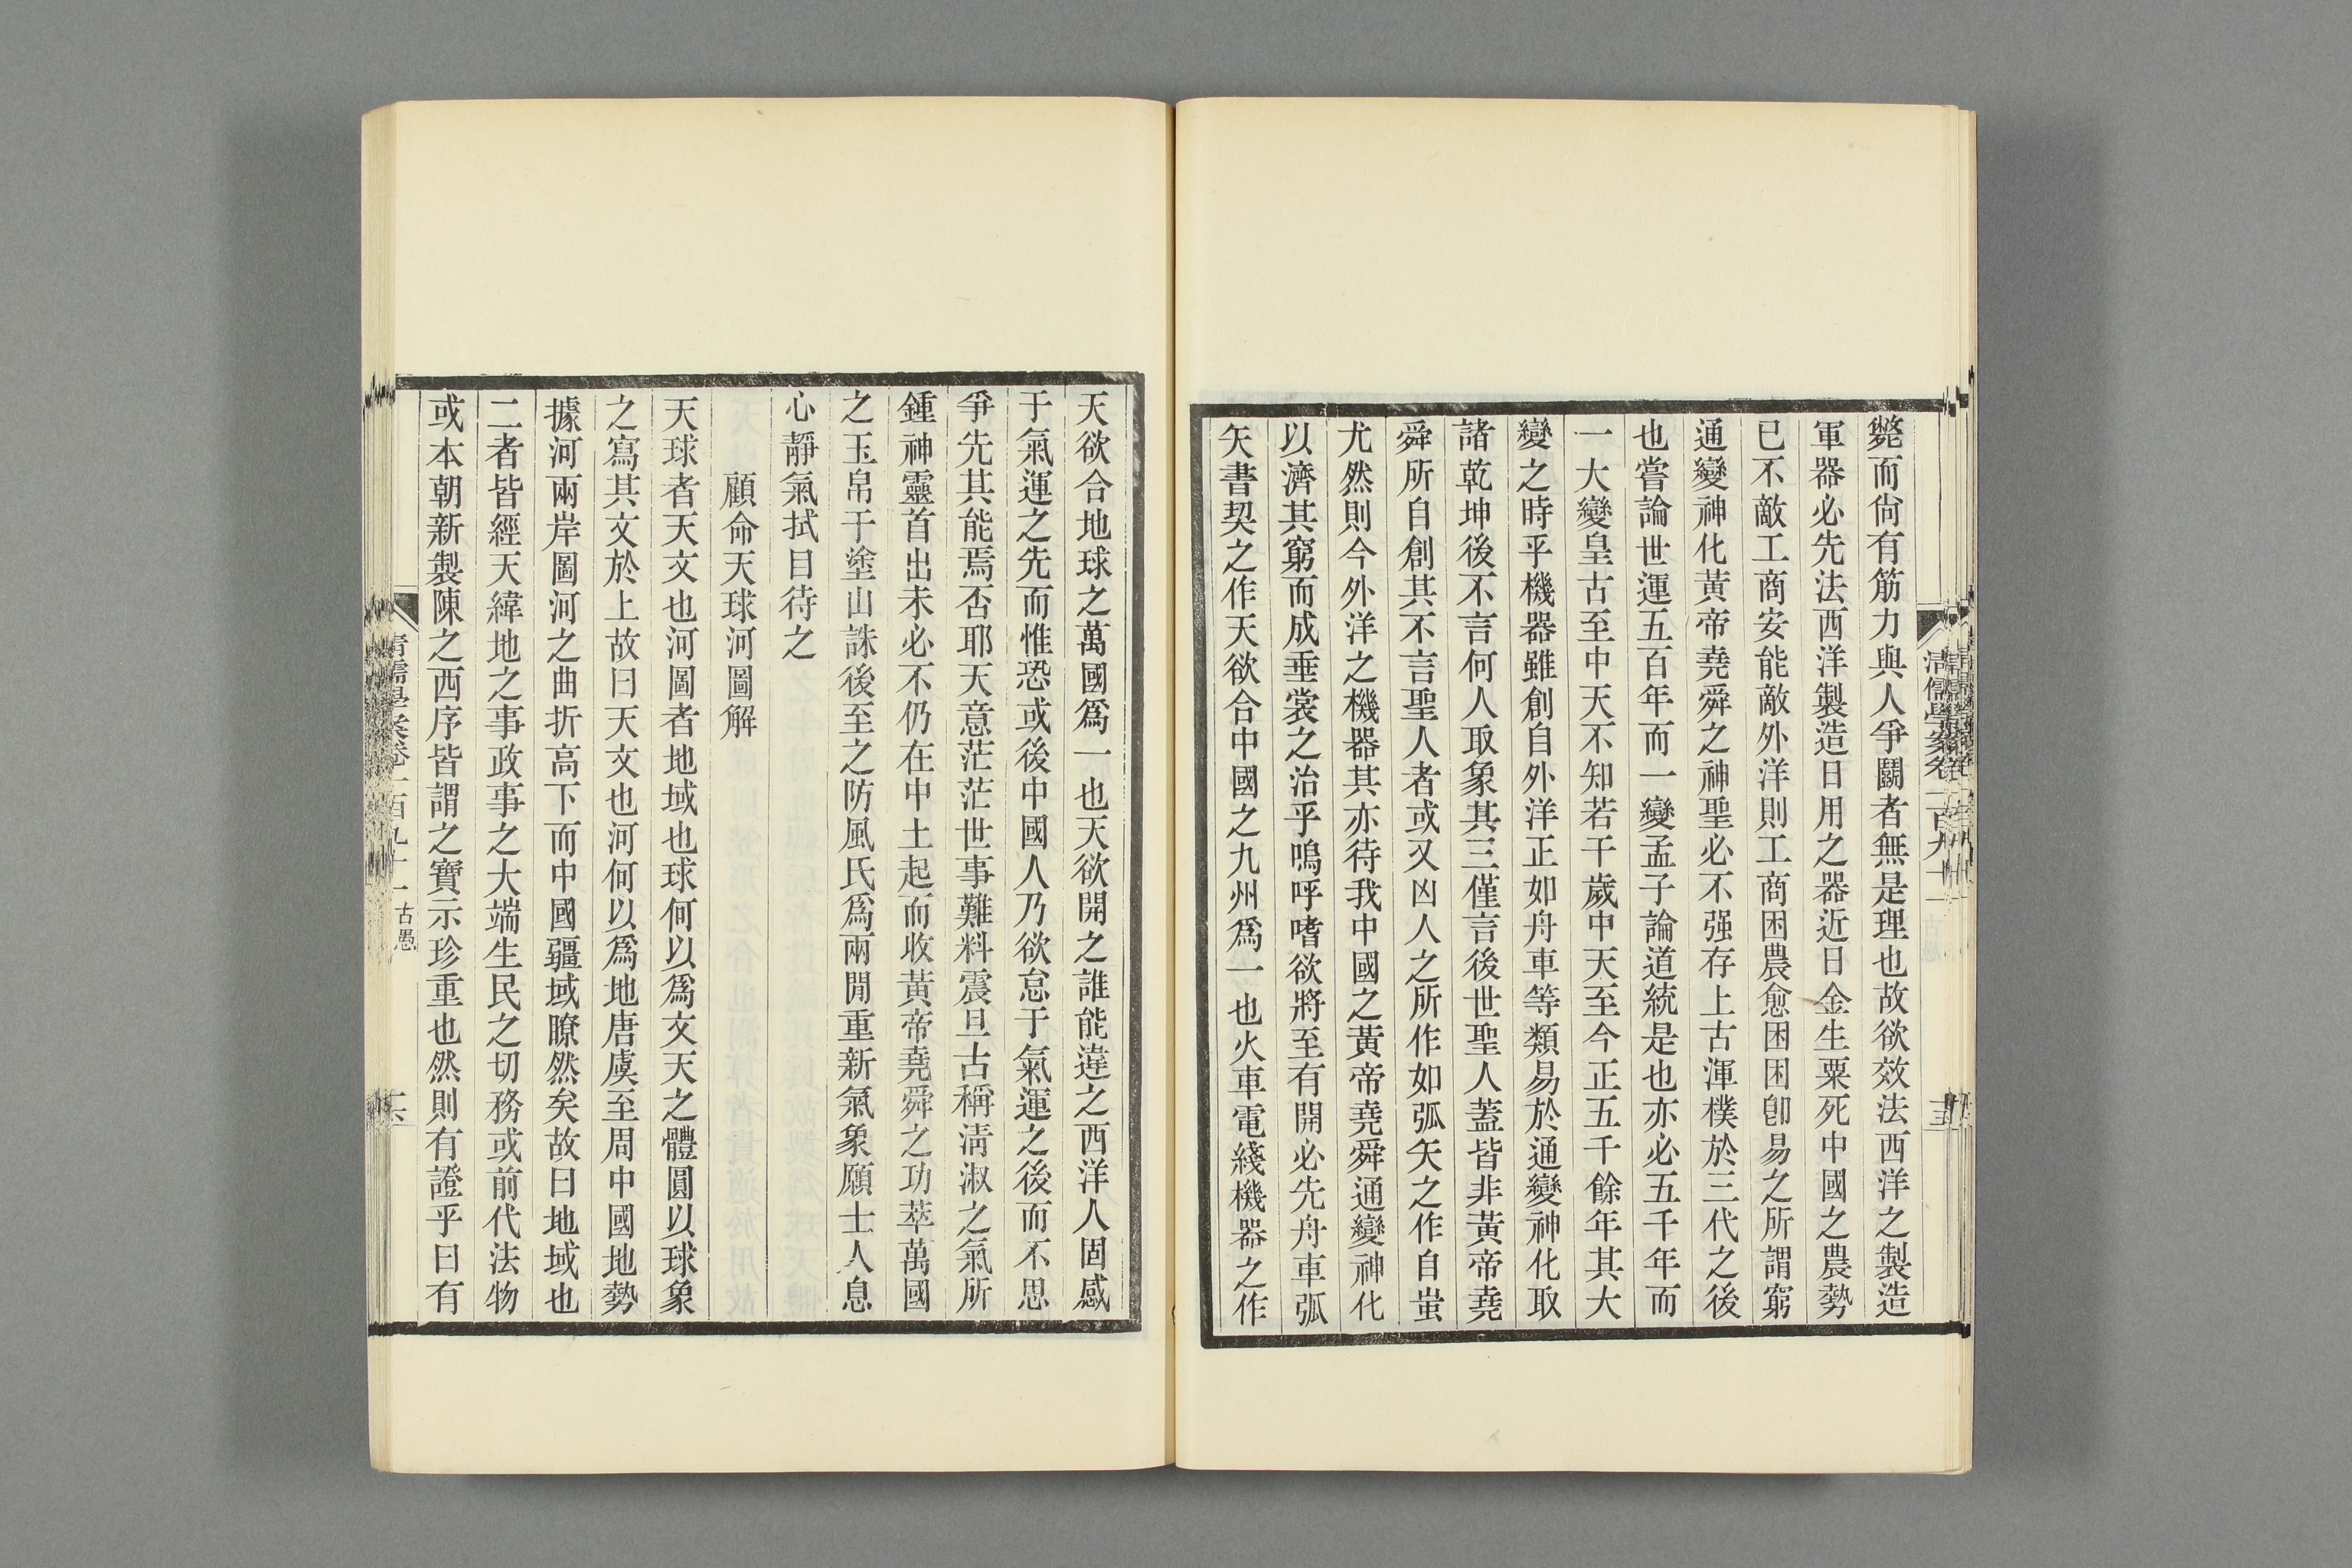 斃而尙有筋力與人爭鬬者無是理也故欲效法西洋之製造
軍器必先法西洋製造日用之器近日金生粟死中國之農勢
已不敵工商安能敵外洋則工商困農愈困困卽易之所謂窮
通變神化黃帝堯舜之神聖必不强存上古渾樸於三代之後
也嘗論世運五百年而一變孟子論道統是也亦必五千年而
一大變皇古至中天不知若干歲中天至今正五千餘年其大
變之時乎機器雖創自外洋正如舟車等類易於通變神化取
諸乾坤後不言何人取象其三僅言後世聖人蓋皆非黃帝堯
舜所自創其不言聖人者或又凶人之所作如弧矢之作自蚩
尤然則今外洋之機器其亦待我中國之黃帝堯舜通變神化
以濟其窮而成垂裳之治乎嗚呼嗜欲將至有開必先舟車弧
矢書契之作天欲合中國之九州爲一也火車電綫機器之作
天欲合地球之萬國爲一也天欲開之誰能違之西洋人固感
于氣運之先而惟恐或後中國人乃欲怠于氣運之後而不思
爭先其能焉否耶天意茫茫世事難料震旦古稱淸淑之氣所
鍾神靈首出未必不仍在中土起而收黃帝堯舜之功萃萬國
之玉帛于塗山誅後至之防風氏爲兩閒重新氣象願士人息
心靜氣拭目待之
顧命天球河圖解
天球者天文也河圖者地域也球何以爲文天之體圓以球象
之寫其文於上故曰天文也河何以爲地唐虞至周中國地勢
據河兩岸圖河之曲折高下而中國疆域瞭然矣故曰地域也
二者皆經天緯地之事政事之大端生民之切務或前代法物
或本朝新製陳之西序皆謂之寶示珍重也然則有證乎曰有
清儒學案卷一百九十一 古愚